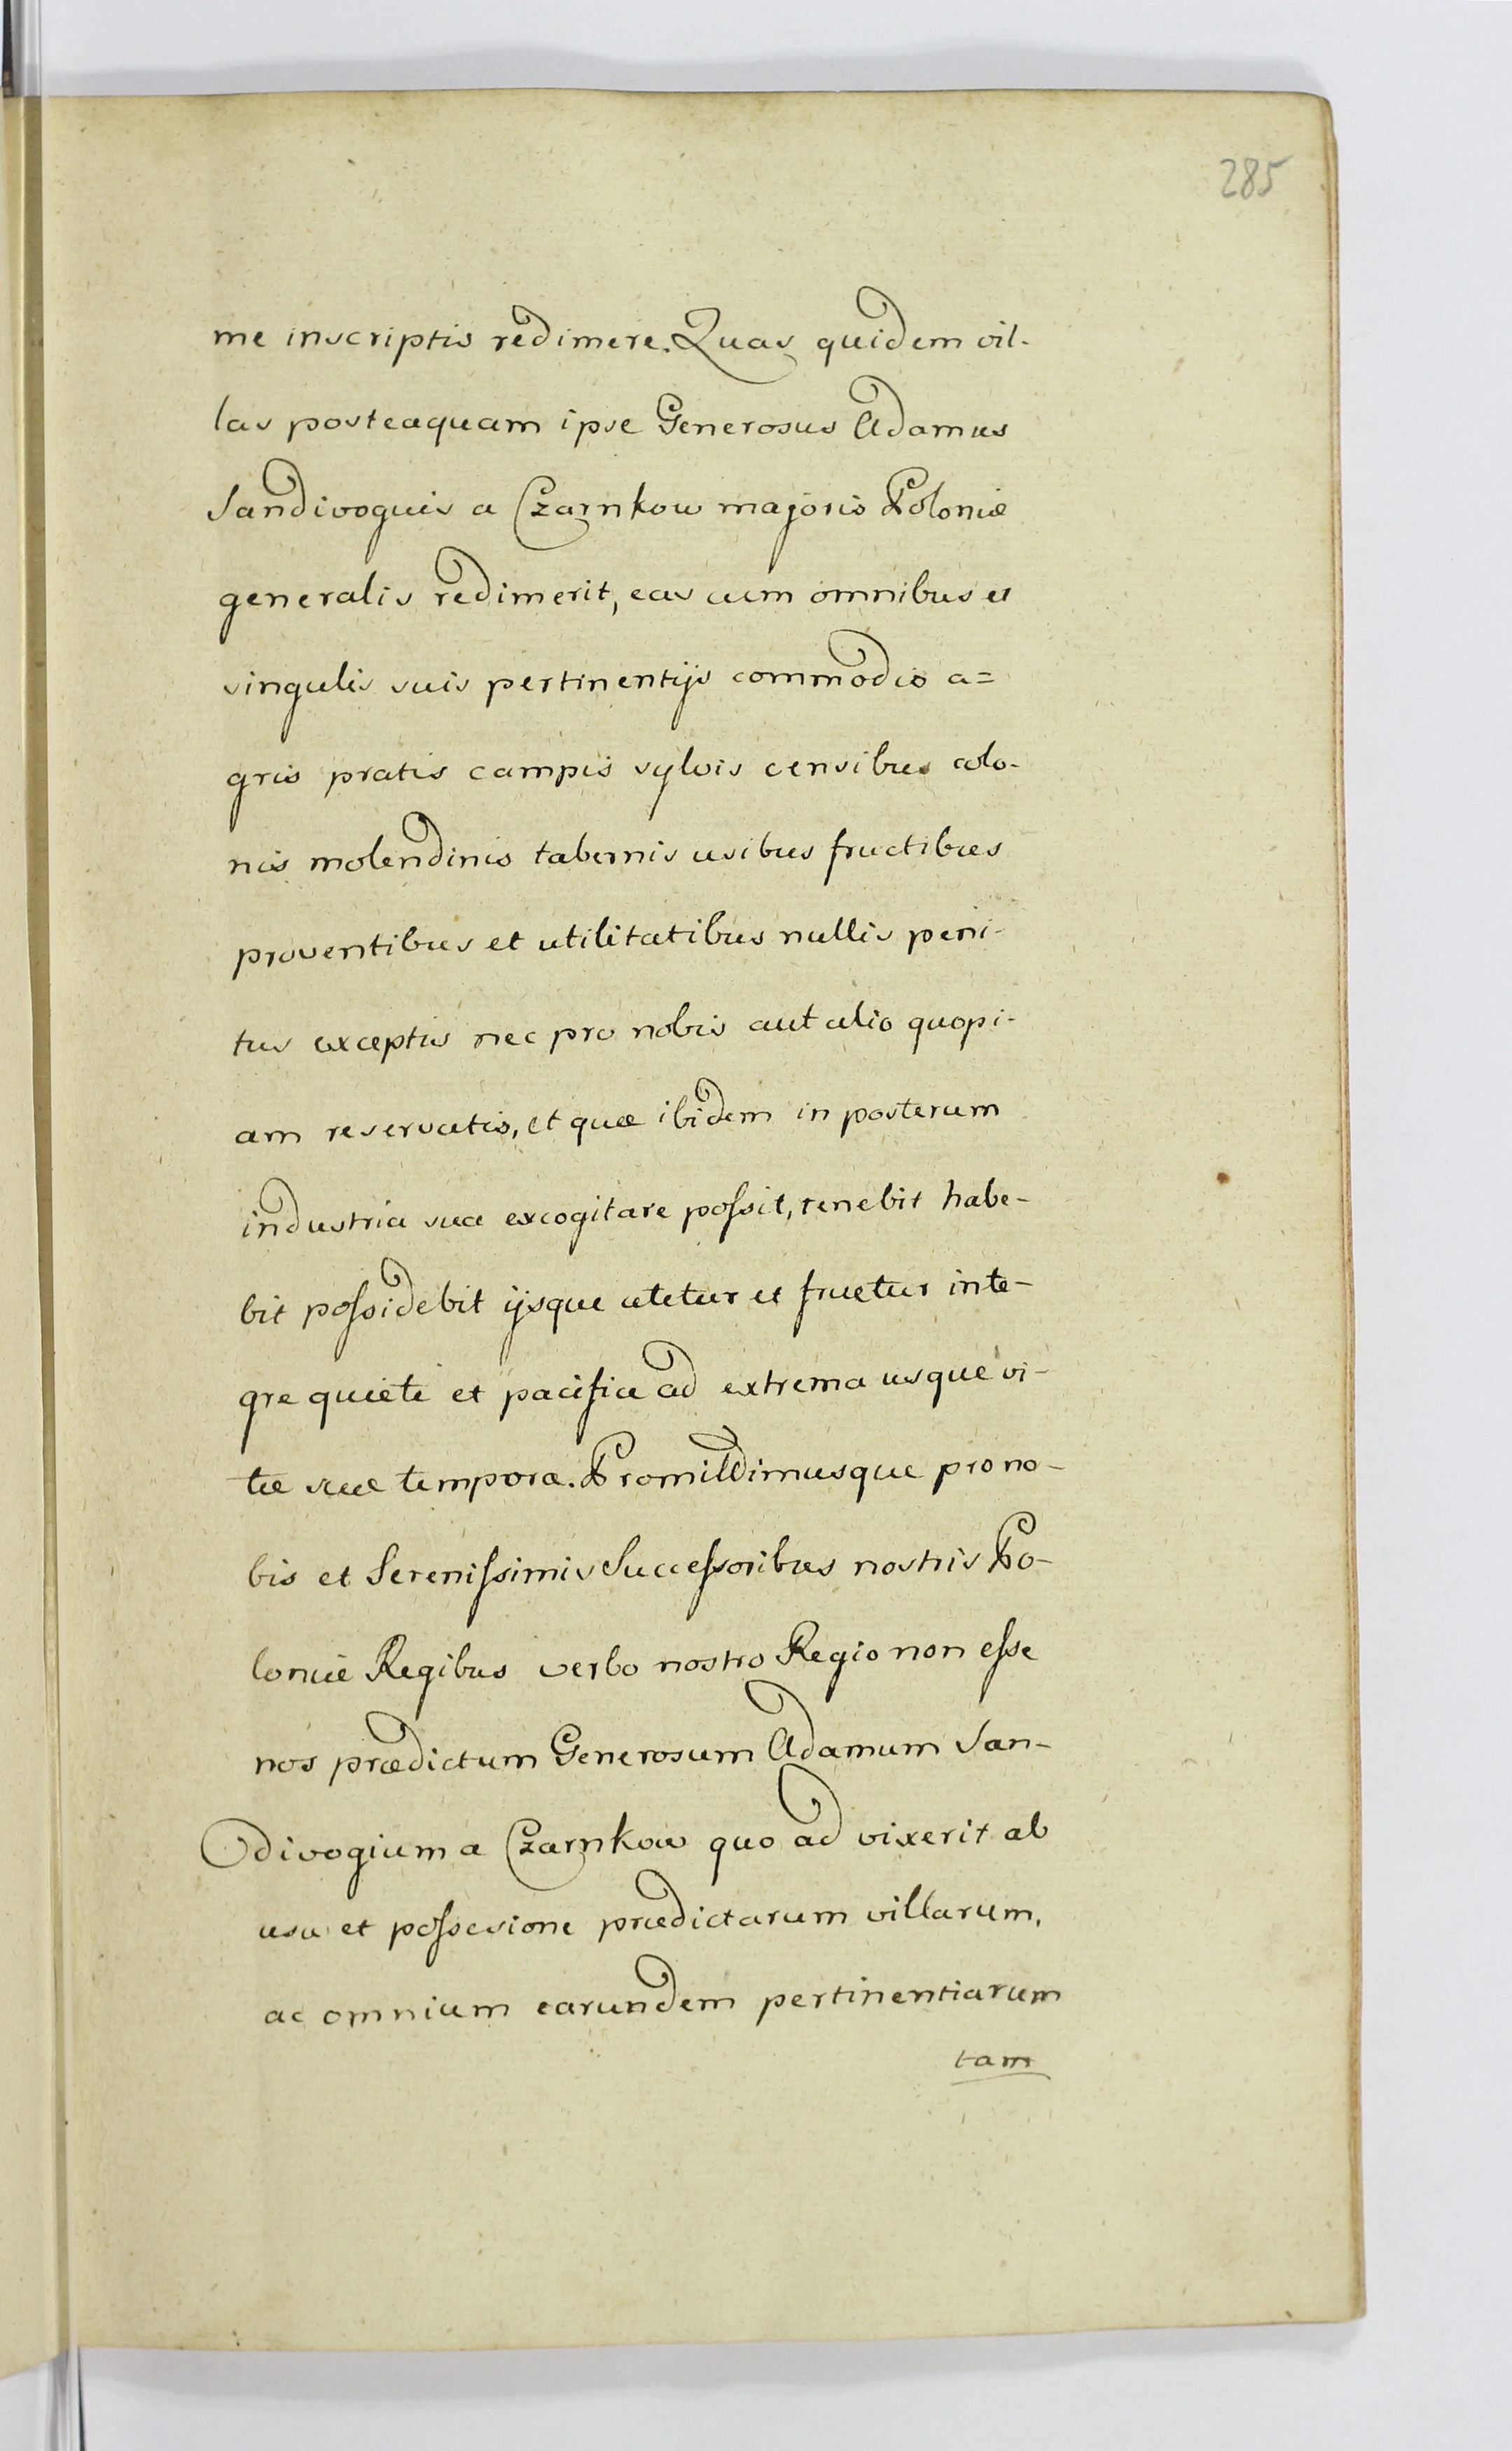 285
me inscriptis redimere. Quas quidem vil-
las posteaquam ipse Generosus Adamus
Sandivogius a Czarnkow majoris Poloniæ
generalis redimerit, eas cum omnibus et
singulis suis pertinentijs commodis a=
gris pratis campis sylvis censibus colo-
nis molendinis tabernis usibus fructibus
proventibus et utilitatibus nullis peni-
tus exceptis nec pro nobis aut alio quopi-
am reservatis, et quæ ibidem in posterum
industria sua excogitare possit, tenebit habe-
bit possidebit ijsque utetur et fruetur inte-
gre quiete et pacifice ad extrema usque vi-
tæ suæ tempora. Promittimusque pro no-
bis et Serenissimis Successoribus nostris Po-
loniæ Regibus verbo nostro Regio non esse
nos prædictum Generosum Adamum San-
divogium a Czarnkow quo ad vixerit ab
usu et possesione prædictarum villarum,
ac omnium earundem pertinentiarum
tam